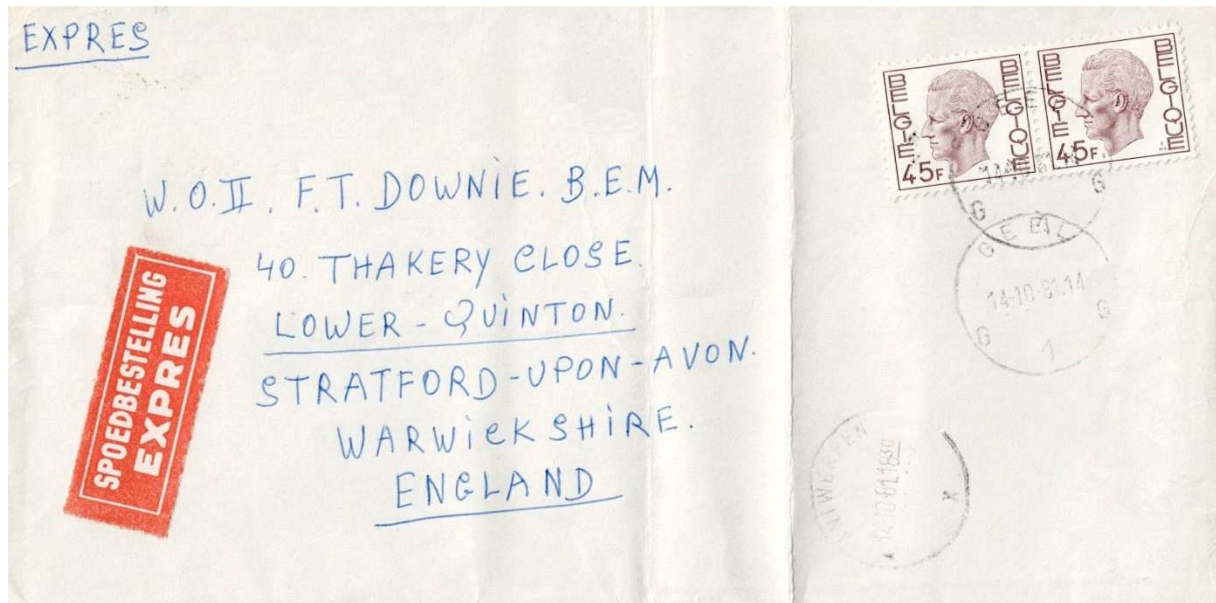 EXPRES
BELGIE BELGIQUE
45F
BELGIE BELGIQUE
45F
W.O.II. F.T. DOWNIE. B.E.M.
40. THAKERY CLOSE.
LOWER-QUINTON.
STRATFORD-UPON-AVON.
WARWICKSHIRE.
ENGLAND
SPOEDBESTELLING
EXPRES
G G
GEEL
14-10-81.14
G G
1
ANTWERPEN
14.10.81.18 30
X